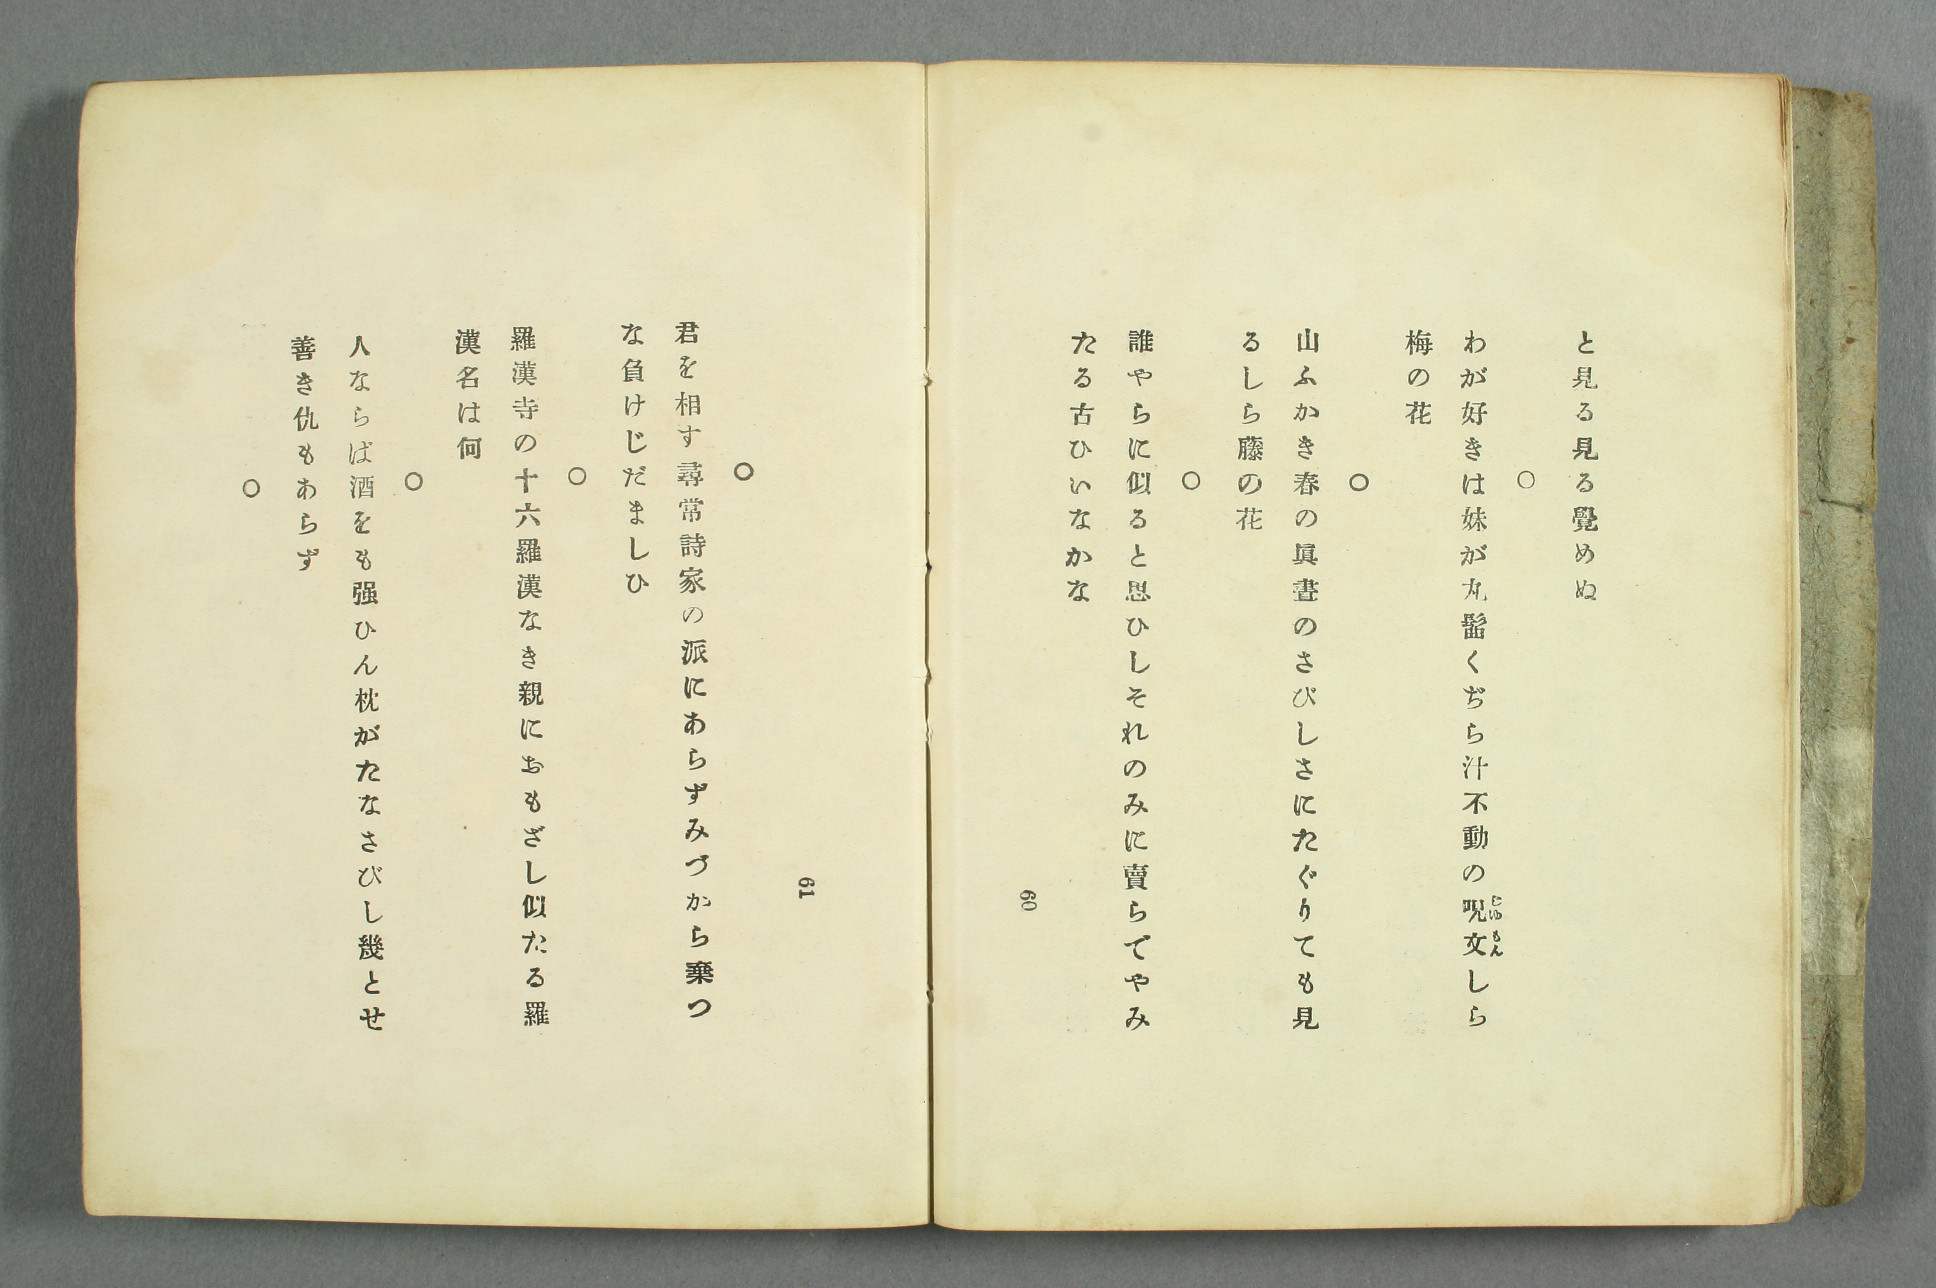 と見る見る覺めぬ
○
わが好きは妹が丸髷くぢら汁不動の呪文しら
じゆもん
梅の花
○
山ふかき春の眞晝のさびしさにたぐりても見
るしら藤の花
○
誰やらに似ると思ひしそれのみに賣らでやみ
たる古ひいなかな
60
○
君を相す尋常詩家の派にあらずみづから棄つ
な負けじだましひ
○
羅漢寺の十六羅漢なき親におもざし似たる羅
漢名は何
○
人ならば酒をも强ひん枕がたなさびし幾とせ
善き仇もあらず
○
61